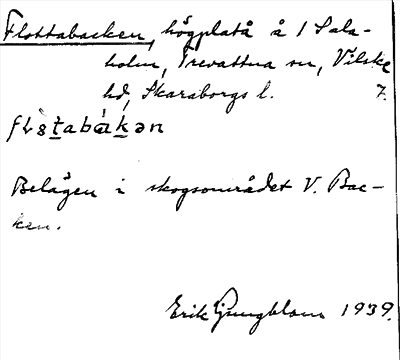 Flottabacken, högplatå å 1 Sala-
holm, Trevattna sn, Vilske
hd, Skaraborgs l. 7.
flòstabákən
Belägen i skogsområdet V. Bac-
ken.
Erik Ljungblom 1939.